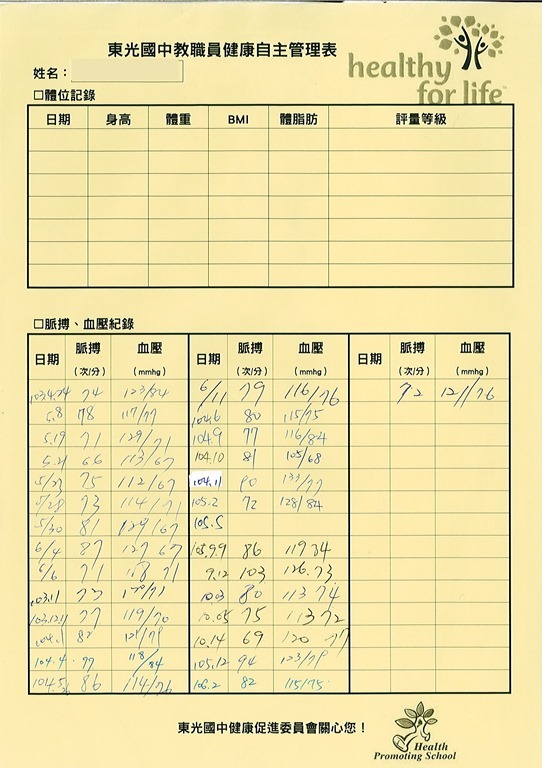 東光國中教職員健康自主管理表
healthy
for life
姓名：
□體位記錄
日期 身高 體重 BMI 體脂肪 評量等級
□脈搏、血壓紀錄
日期 脈搏 (次/分) 血壓 (mmhg) 日期 脈搏 (次/分) 血壓 (mmhg) 日期 脈搏 (次/分) 血壓 (mmhg)
103.4.24 74 123/84 6/11 79 116/76 92 121/76
5.8 78 117/77 104.6 80 115/75
5.19 71 129/71 104.9 77 116/84
5.21 66 113/67 104.10 81 105/68
5/27 75 112/67 104.11 80 133/77
5/28 73 114/71 105.2 72 128/84
5/30 81 129/67 105.5
6/4 87 127 67 105.9.9 86 119 34
6/6 71 118 71 9.12 103 126.73
103.11 10.3 80 113 74
103.12.11 77 119/70 10.05 75 113 72
104.1 82 121/79 10.14 69 120 77
104.4 77 118/84 105.12 94 123/79
104.5 86 114/76 106.2 82 115/75
東光國中健康促進委員會關心您！
Health
Promoting School